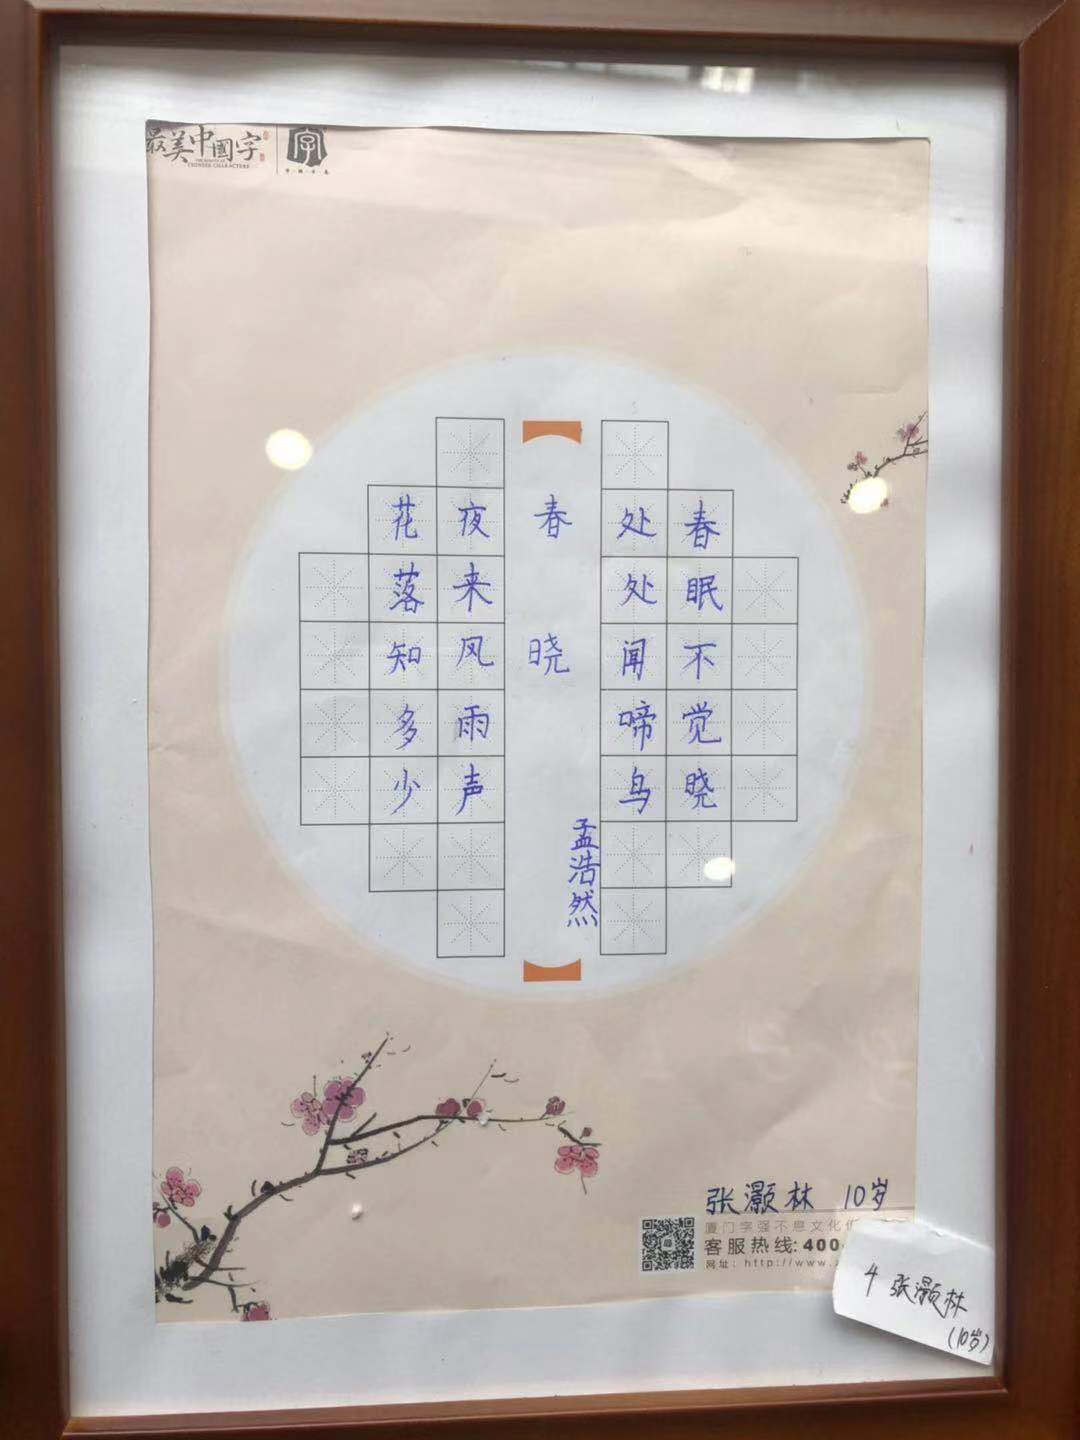 最美中國字
THE BEAUTY OF CHINESE CHARACTERS
字
春眠不觉晓
处处闻啼鸟
春晓
孟浩然
夜来风雨声
花落知多少
张灏林 10岁
厦门字强不息文化
客服热线:400
网址: http://www.
4 张灏林
(10岁)